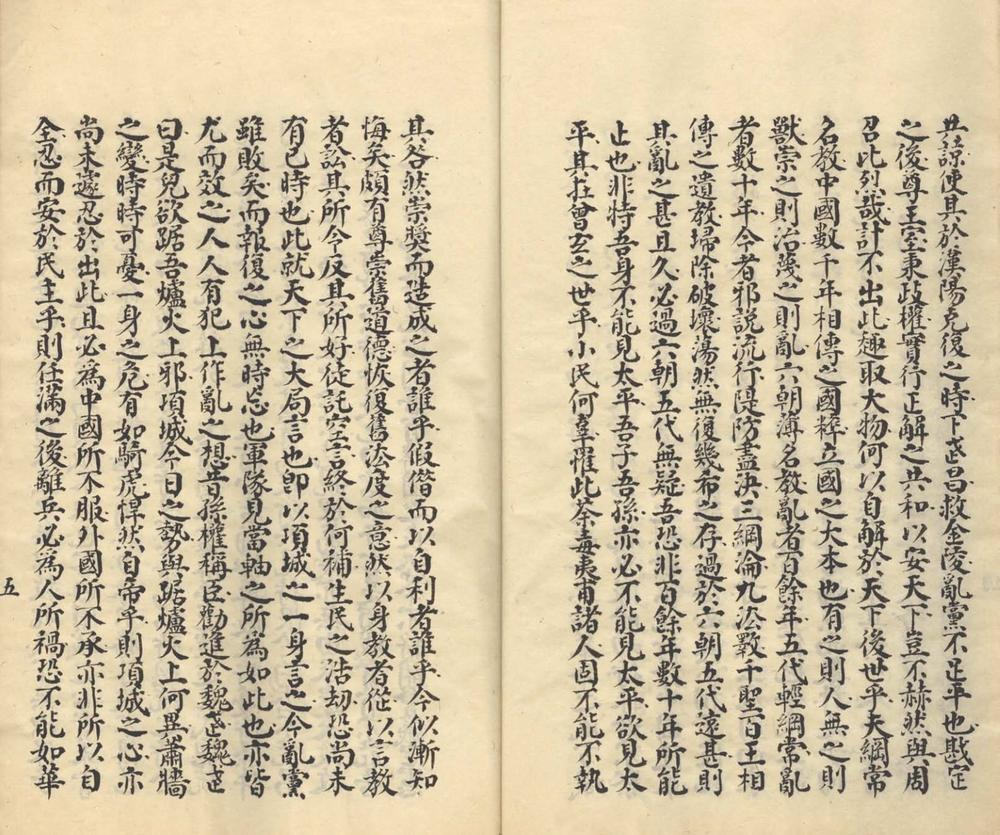 其諒使其於漢陽克復之時下武昌救金陵亂黨不足平也戡定
之後尊王室秉政權實行正解之共和以安天下豈不赫然與周
召比烈哉計不出此趣取大物何以自解於天下後世乎夫綱常
名教中國數千年相傳之國粹立國之大本也有之則人無之則
獸崇之則治蔑之則亂六朝薄名教亂者百餘年五代輕綱常亂
者數十年今者邪說流行隄防盡決三綱淪九法斁千聖百王相
傳之遺教埽除破壞蕩然無復幾希之存過於六朝五代遠甚則
其亂之甚且久必過六朝五代無疑吾恐非百餘年數十年所能
止也非特吾身不能見太平吾子吾孫亦必不能見太平欲見太
平其在曾玄之世乎小民何辜罹此荼毒夷甫諸人固不能不執
其咎然崇獎而造成之者誰乎假借而以自利者誰乎今似漸知
悔矣頗有尊崇舊道德恢復舊法度之意然以身教者從以言教
者訟其所令反其所好徒託空言終於何補生民之浩劫恐尚未
有已時也此就天下之大局言也卽以項城之一身言之今亂黨
雖敗矣而報復之心無時忘也軍隊見當軸之所為如此也亦皆
尤而效之人人有犯上作亂之想昔孫權稱臣勸進於魏武魏武
曰是兒欲踞吾爐火上邪項城今日之勢與踞爐火上何異蕭牆
之變時時可憂一身之危有如騎虎悍然自帝乎則項城之心亦
尚未遽忍於出此且必為中國所不服外國所不承亦非所以自
全忍而安於民主乎則任滿之後離兵必為人所禍恐不能如華
五